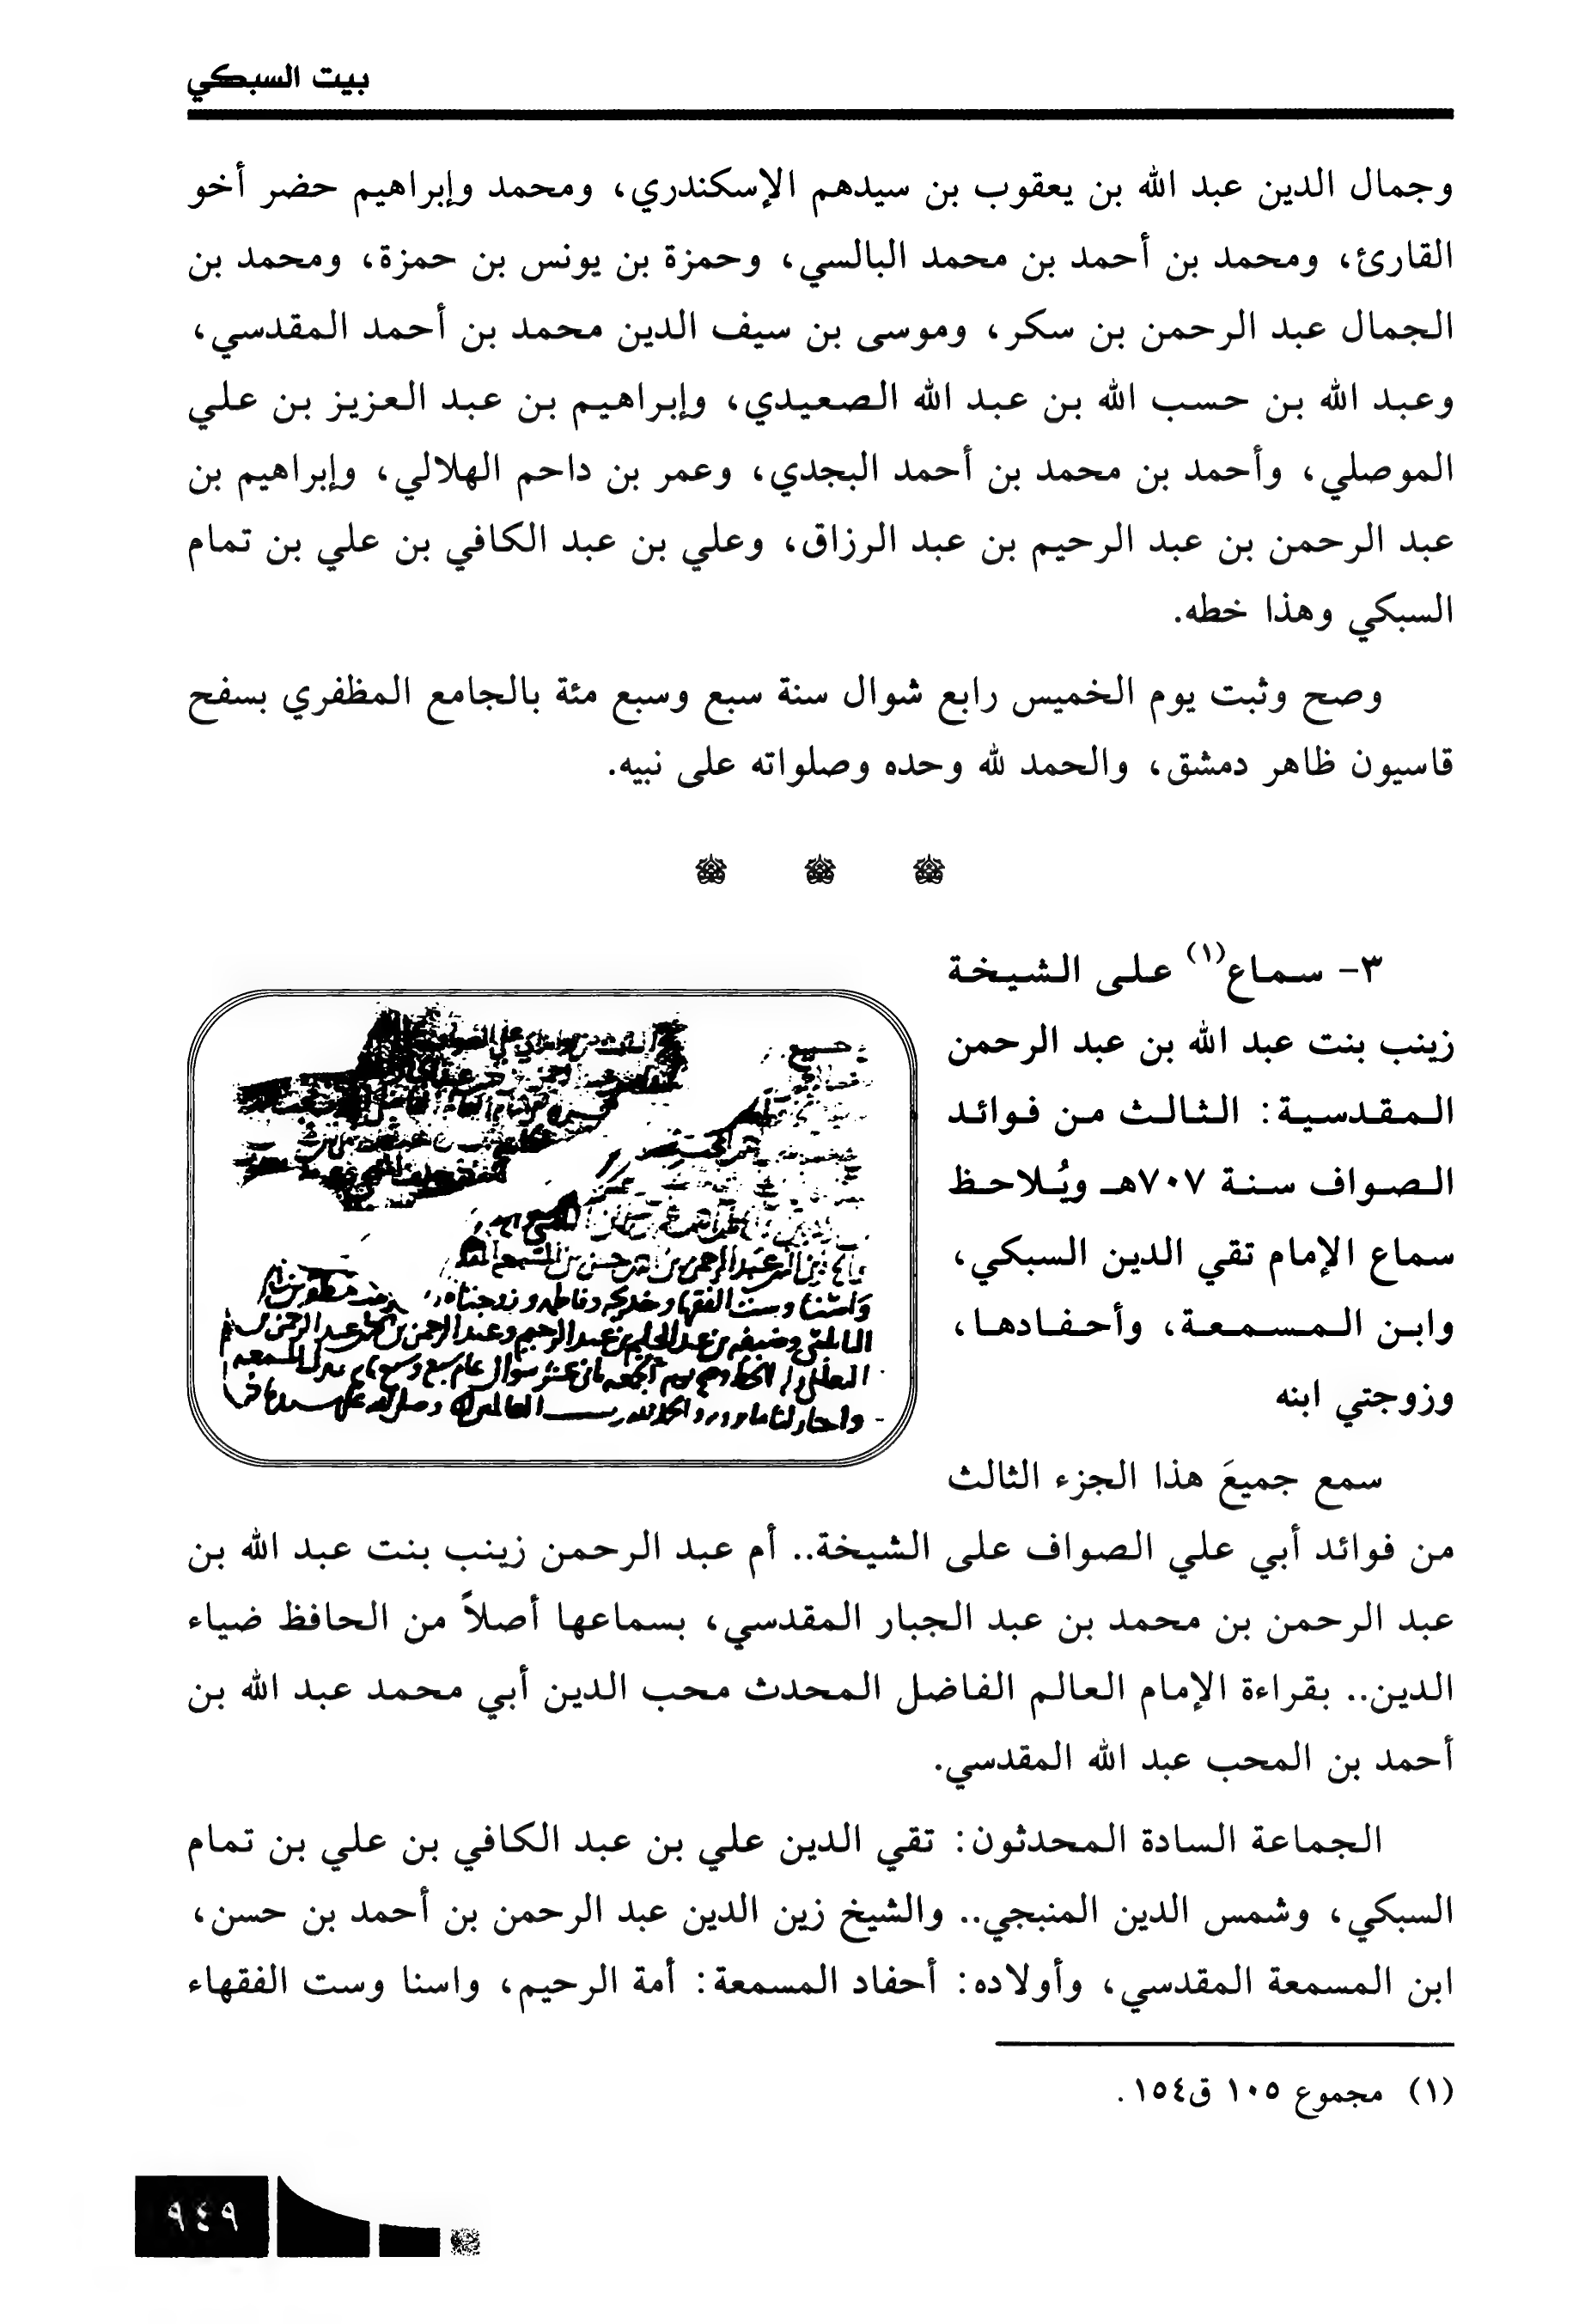 بيت السبكي
وجمال الدين عبد الله بن يعقوب بن سيدهم الإسكندري، ومحمد وإبراهيم حضر أخو
القارئ، ومحمد بن أحمد بن محمد البالسي، وحمزة بن يونس بن حمزة، ومحمد بن
الجمال عبد الرحمن بن سكر، وموسى بن سيف الدين محمد بن أحمد المقدسي،
وعبد الله بن حسب الله بن عبد الله الصعيدي، وإبراهيم بن عبد العزيز بن علي
الموصلي، وأحمد بن محمد بن أحمد البجدي، وعمر بن داحم الهلالي، وإبراهيم بن
عبد الرحمن بن عبد الرحيم بن عبد الرزاق، وعلي بن عبد الكافي بن علي بن تمام
السبكي وهذا خطه.
وصح وثبت يوم الخميس رابع شوال سنة سبع وسبع مئة بالجامع المظفري بسفح
قاسيون ظاهر دمشق، والحمد لله وحده وصلواته على نبيه.
٣- سماع(١) على الشيخة
زينب بنت عبد الله بن عبد الرحمن
المقدسية: الثالث من فوائد
الصواف سنة ٧٠٧هـ ويُلاحظ
سماع الإمام تقي الدين السبكي،
وابن المسمعة، وأحفادها،
وزوجتي ابنه
سمع جميعَ هذا الجزء الثالث
من فوائد أبي علي الصواف على الشيخة.. أم عبد الرحمن زينب بنت عبد الله بن
عبد الرحمن بن محمد بن عبد الجبار المقدسي، بسماعها أصلاً من الحافظ ضياء
الدين.. بقراءة الإمام العالم الفاضل المحدث محب الدين أبي محمد عبد الله بن
أحمد بن المحب عبد الله المقدسي.
الجماعة السادة المحدثون: تقي الدين علي بن عبد الكافي بن علي بن تمام
السبكي، وشمس الدين المنبجي.. والشيخ زين الدين عبد الرحمن بن أحمد بن حسن،
ابن المسمعة المقدسي، وأولاده: أحفاد المسمعة: أمة الرحيم، واسنا وست الفقهاء
(١) مجموع ١٠٥ ق١٥٤.
٩٤٩